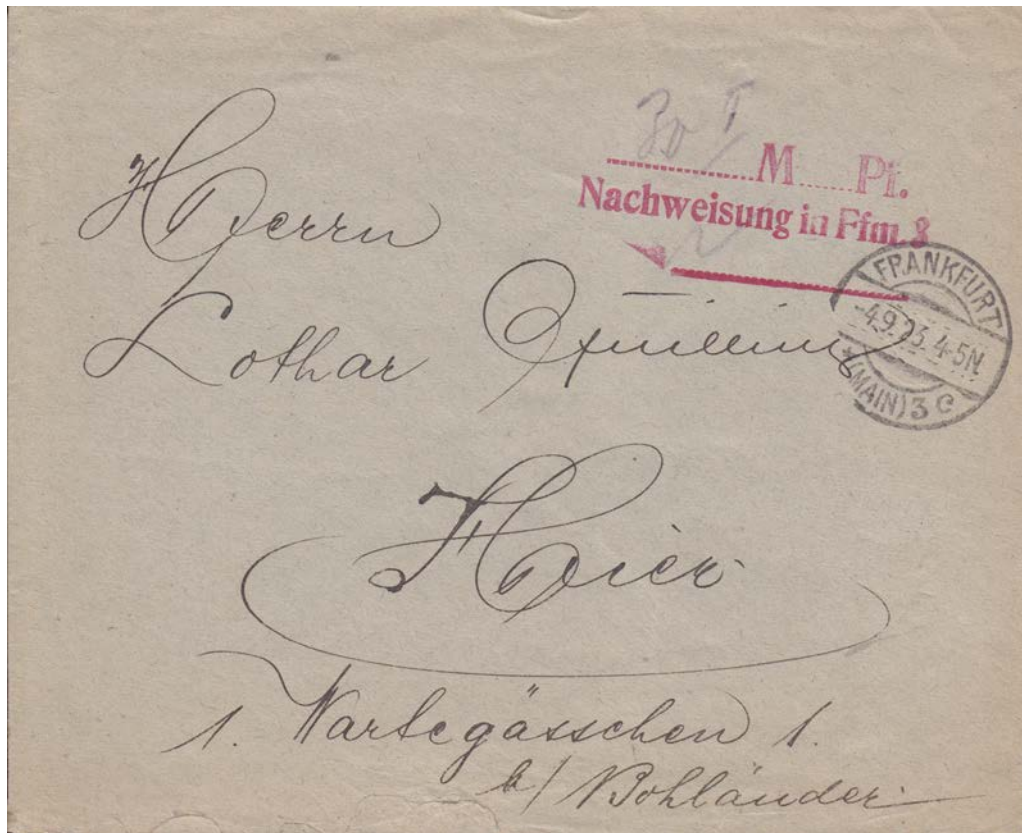 30 T
M Pf.
Nachweisung in Ffm. 3
FRANKFURT
-4.9.23.4-5N.
*(MAIN) 3 C
Herrn
Lothar
Hier
1. Wartegässchen 1.
b/ Bohländer.